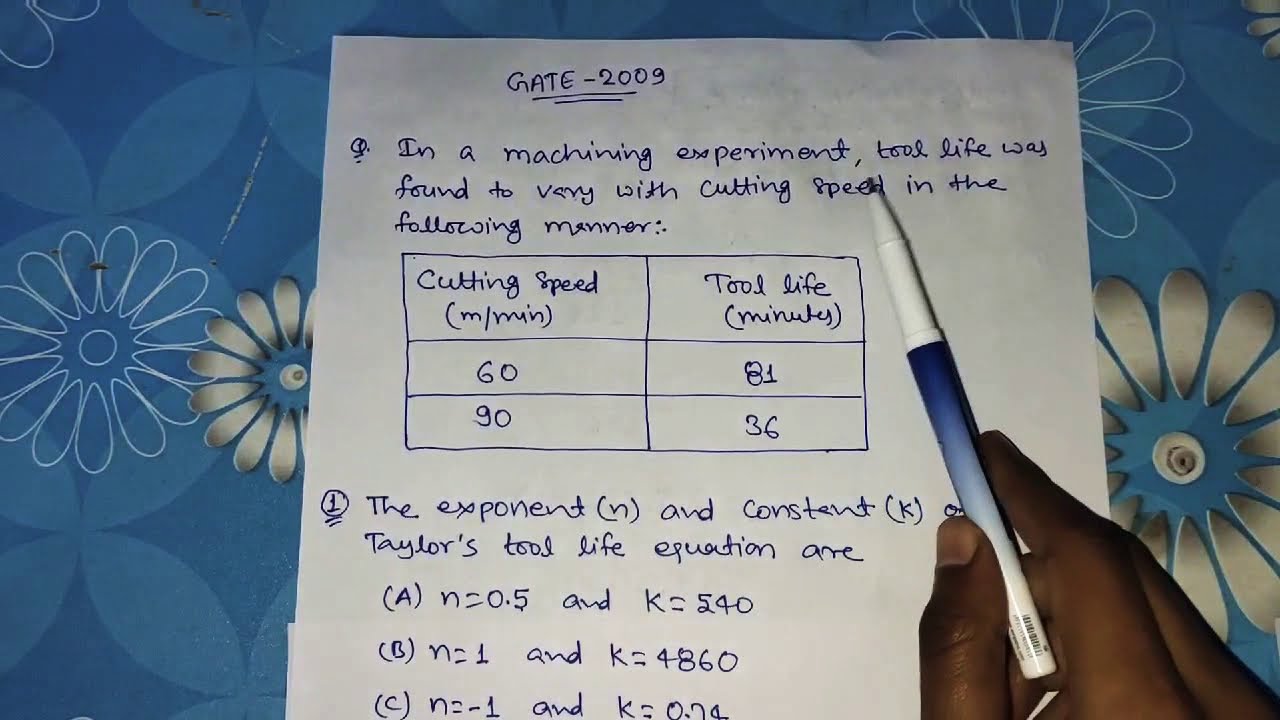 GATE-2009
Q. In a machining experiment, tool life was
found to vary with cutting speed in the
following manner:-
Cutting speed Tool life
(m/min) (minutes)
60 81
90 36
① The exponent (n) and constant (k)
Taylor's tool life equation are
(A) n=0.5 and K=540
(B) n=1 and K=4860
(C) n=-1 and K=0.74